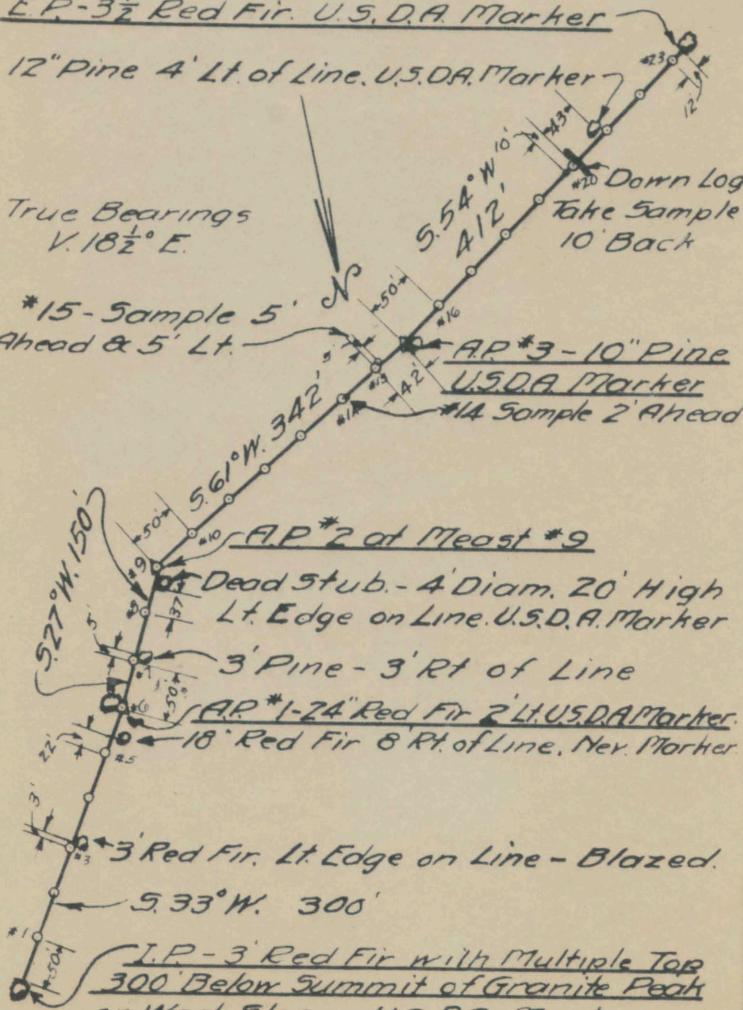 E.P.-3½ Red Fir. U.S.D.A. Marker
#23
12'
12" Pine 4' Lt. of Line. U.S.D.A. Marker
43'
10'
#20 Down Log
Take Sample
10' Back
S.54°W
412'
True Bearings
V. 18½° E.
N
50'
#16
#15-Sample 5'
Ahead & 5' Lt.
5'
#15
42'
A.P. #3-10" Pine
U.S.D.A. Marker
#14
#14 Sample 2' Ahead
S.61°W. 342'
50'
#10
#9
A.P. #2 at Meast #9
S.27°W. 150'
Dead Stub.-4' Diam. 20' High
Lt. Edge on Line. U.S.D.A. Marker
37'
5'
#7
3' Pine - 3' Rt of Line
50'
#6
A.P. #1-24" Red Fir 2' Lt. U.S.D.A. Marker.
18" Red Fir 8' Rt. of Line. Nev. Marker
22'
#5
3'
#3
3' Red Fir. Lt. Edge on Line - Blazed.
S.33°W. 300'
#1
50'
I.P.-3' Red Fir with Multiple Top
300' Below Summit of Granite Peak